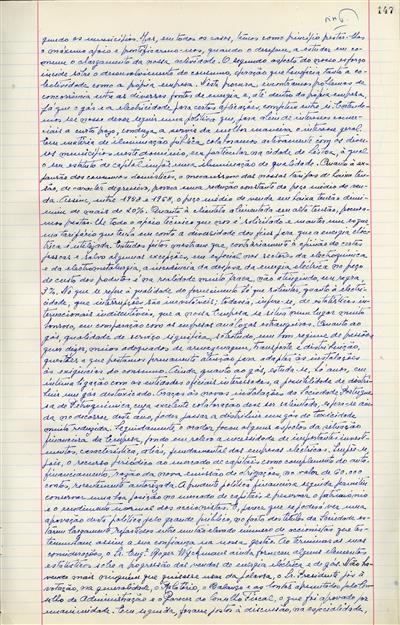 147
quando os municípios. Mas, em todos os casos, temos como princípio prestar-lhes
o máximo apoio e prontificarmo-nos, quando o desejem, a estudar em co-
mum o alargamento da nossa actividade. O segundo aspecto do nosso esforço
incide sobre o desenvolvimento do consumo, operação que beneficia tanto a co-
lectividade como a própria empresa. Nesta procura, encontramos problemas de
concorrência entre as diversas fontes de energia e, até dentro da própria empresa,
já que o gás e a electricidade, para certas aplicações, competem entre si. Entende-
mos ser nosso dever seguir uma política que, para além de interesses comer-
ciais a curto prazo, conduza a servir da melhor maneira o interesse geral.
Em matéria de iluminação pública colaboramos activamente com os diver-
sos municípios neste domínio, em particular, na cidade de Lisboa, à qual
o seu estatuto de capital impõe uma iluminação de qualidade. Quanto à ex-
pansão dos consumos domésticos, o mecanismo das nossas tarifas de baixa ten-
são, de carácter degressivo, provoca uma redução constante do preço médio de ven-
da. Assim, entre 1958 e 1968, o preço médio de venda em baixa tensão dimi-
nuiu de mais de 20%. Quanto à clientela alimentada em alta tensão, procura-
mos prestar-lhe todo o apoio técnico que nos é solicitado e manter um esque-
ma tarifário que tenha em conta a diversidade dos fins para que a energia eléc-
trica é utilizada. Estudos feitos mostram que, contrariamente à opinião de certas
pessoas e salvo algumas excepções, em especial no sector da electroquímica
e da electrometalurgia, a incidência da despesa da energia eléctrica no preço
de custo dos produtos é na realidade muito fraca, não atingindo, em regra,
3%. No que se refere à qualidade do fornecimento há que salientar, quanto à electri-
cidade, que interrupções são inevitáveis; todavia, infere-se, de estatísticas in-
ternacionais indiscutíveis, que a nossa Empresa se situa num lugar muito
honroso, em comparação com as empresas análogas estrangeiras. Quanto ao
gás, qualidade de serviço significa, sobretudo, um bom regime de pressões,
questões a que prestamos permanente atenção para adaptar as instalações
às exigências do consumo. Ainda quanto ao gás, estuda-se, há anos, em
íntima ligação com as entidades oficiais interessadas, a possibilidade de distri-
buir um gás destoxicado. Graças às novas instalações da Sociedade Portugue-
sa de Petroquímica, cuja excelente colaboração deve ser salientada, espera-se ain-
da no decorrer deste ano, poder passar a distribuir um gás de toxicidade
muito reduzida. Seguidamente o orador focou alguns aspectos da situação
financeira da Empresa, pondo em relevo a necessidade de importantes investi-
mentos, característica, aliás, fundamental das empresas eléctricas. Impõe-se,
pois, o recurso periódico ao mercado de capitais como complemento do auto-
financiamento, razão da nova emissão de obrigações, no valor de 60.000
contos, recentemente autorizada. A prudente política financeira seguida permitiu
conservar uma boa posição no mercado de capitais e preservar o património
e o rendimento normal dos accionistas. É, parece que se poderá ver uma
aprovação desta política pelo grande público, no facto dos títulos da Sociedade es-
tarem largamente repartidos entre um elevado número de accionistas que tes-
temunham assim a sua confiança na nossa gestão. Ao terminar as suas
considerações, o Sr. Engº. Roger Wyckmans ainda forneceu alguns elementos
estatísticos sobre a progressão das vendas de energia eléctrica e de gás. Não ha-
vendo mais ninguém que quisesse usar da palavra, o Sr. Presidente pôs à
votação, na generalidade, o Relatório, o Balanço e as contas apresentados pelo Con-
selho de Administração e o Parecer do Conselho Fiscal, o que foi aprovado por
unanimidade. Em seguida, foram postos à discussão, na especialidade,